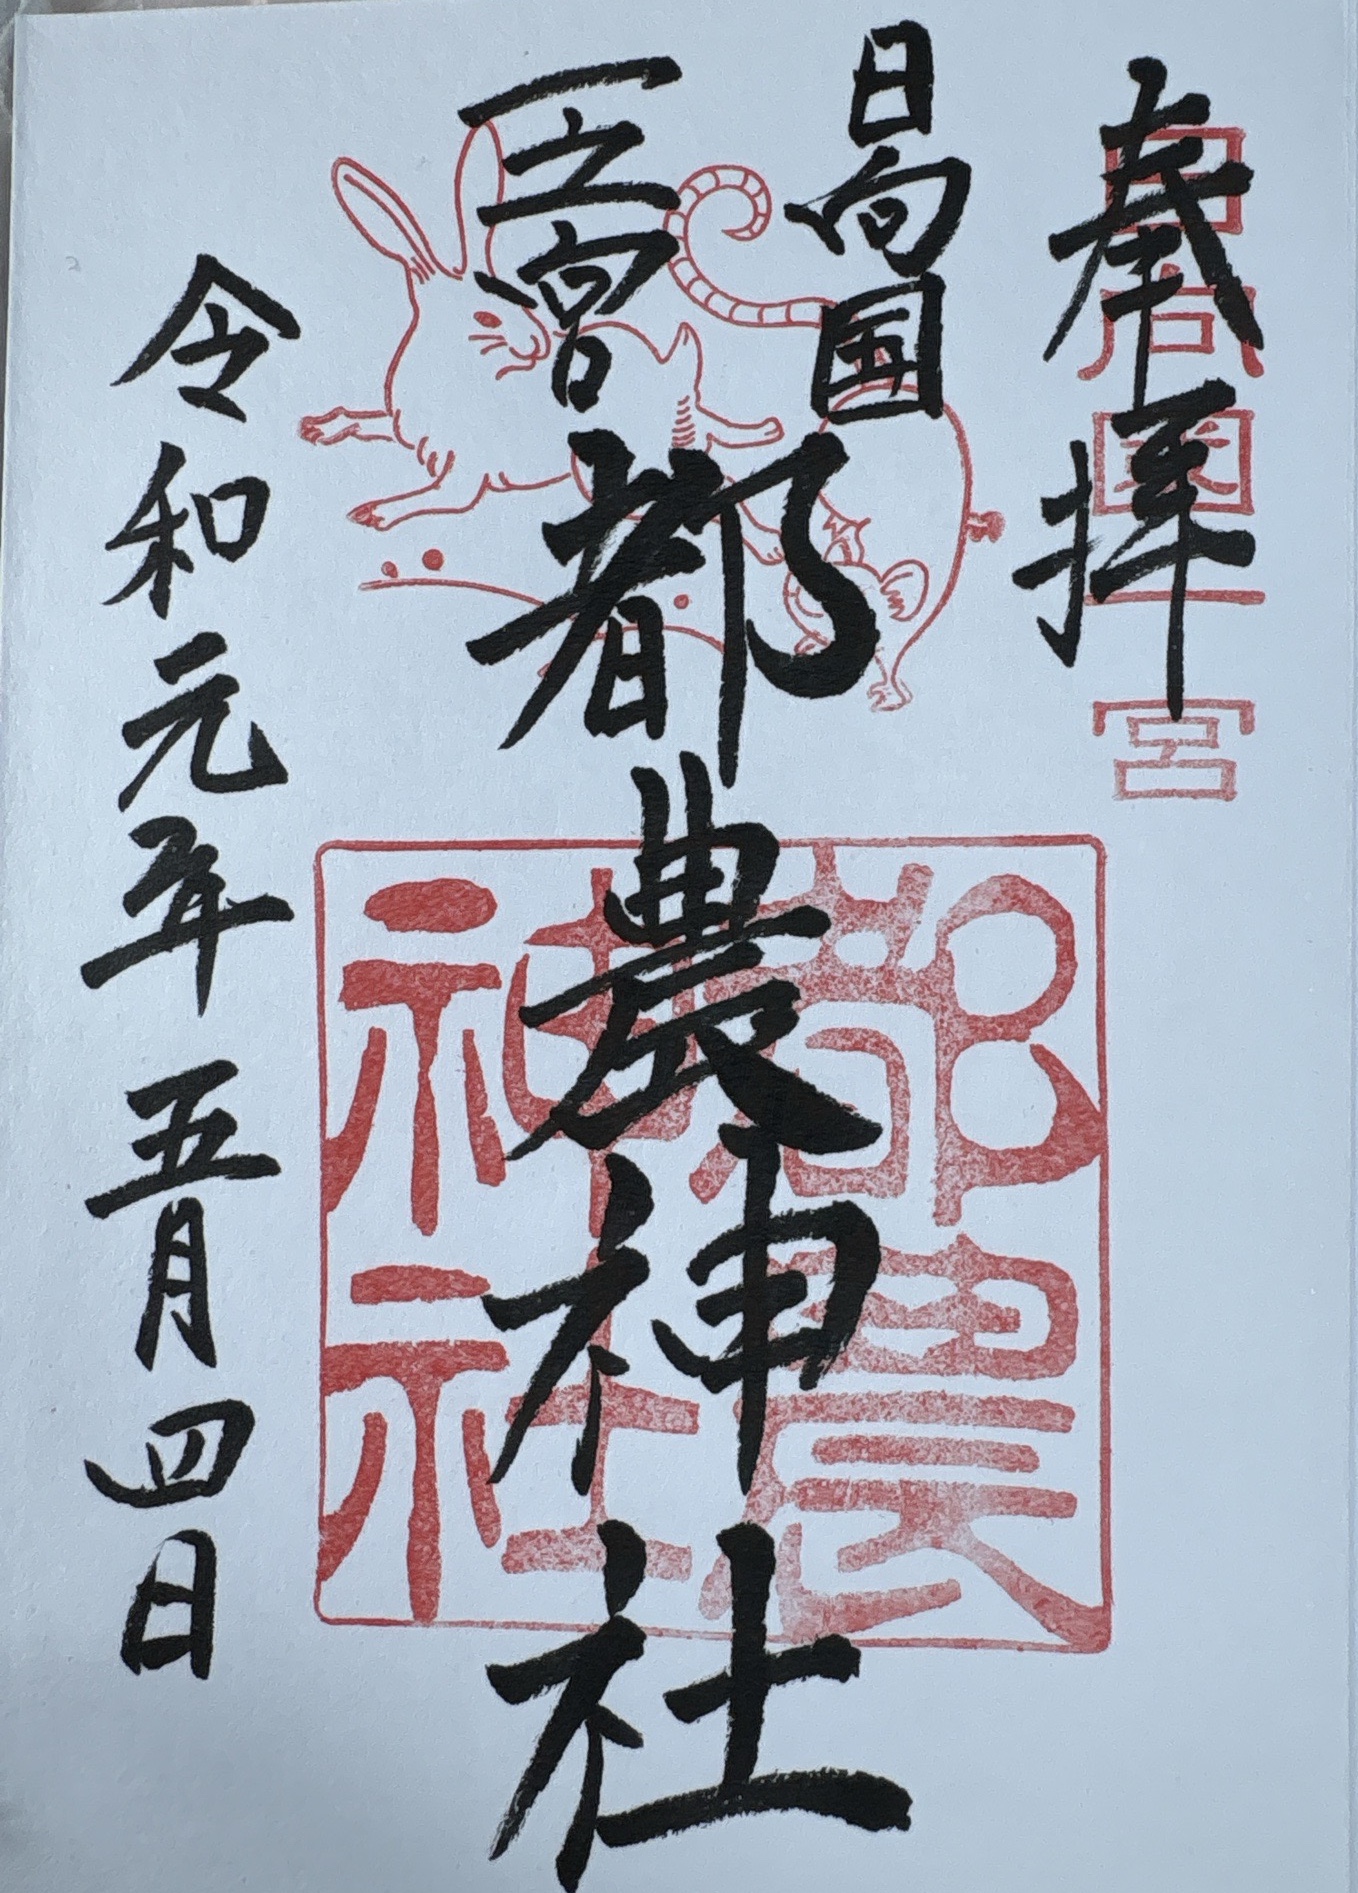 奉拝
日向国一宮
日向国
一之宮
都農神社
都農神社
令和元年五月四日